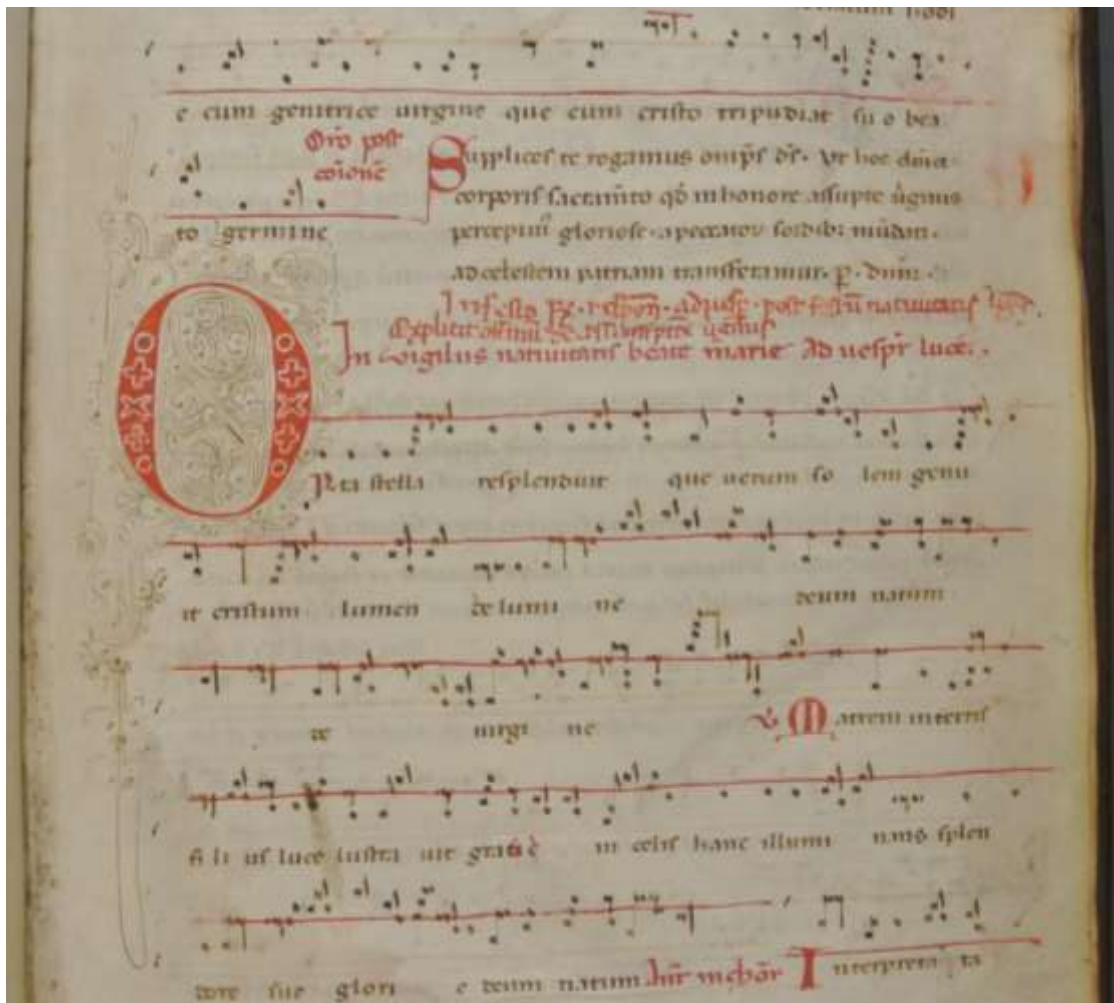 e cum genitrice uirgine que cum cristo tripudiat su o bea
Oro post
coione
to germine
Supplices te rogamus omps ds. Vt hoc
corporis sacramto qd in honore assupte ugnis
gloriose. a peccator sordibz mudati.
ad celestem patriam transferamur. p. dnm.
Explicit
In uigiliis natiuitatis beate marie Ad uespr luce.
Orta stella resplenduit que uerum so lem genu
it cristum lumen de lumi ne deum natum
de uirgi ne V Matrem in terris
fi li us luce lustra uit gratie in celis hanc illumi nans splen
dore sue glori e deum natum Interpreta ta